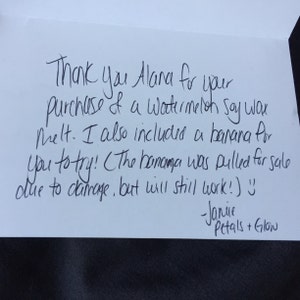 Thank you Alana for your
purchase of a watermelon soy wax
melt. I also included a banana for
you to try! (The banana was pulled for sale
due to damage, but will still work!) :)
-Jamie
Petals + Glow